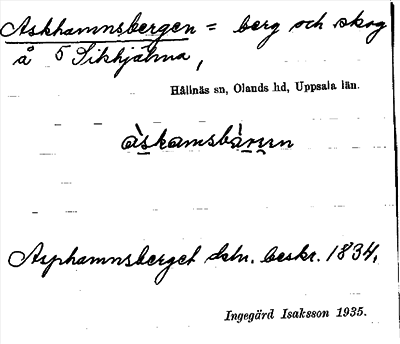 Askhamnsbergen = berg och skog
å 5 Sikhjälma,
Hållnäs sn, Olands hd, Uppsala län.
àskamsbàrun
Asphamnsberget dstr. beskr. 1834.
Ingegärd Isaksson 1935.